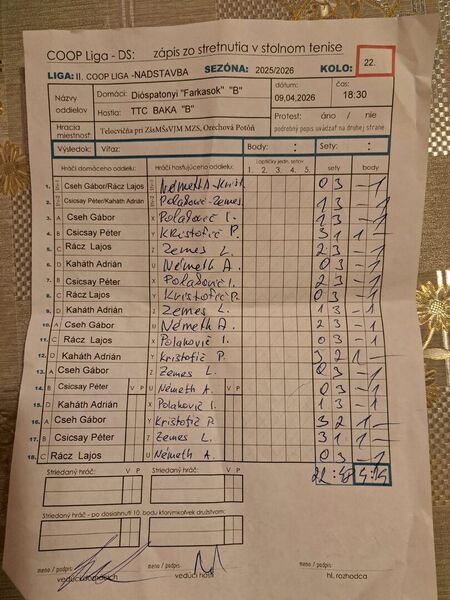 COOP Liga - DS: zápis zo stretnutia v stolnom tenise
LIGA: II. COOP LIGA -NADSTAVBA SEZÓNA: 2025/2026 KOLO: 22.
Názvy oddielov Domáci: Dióspatonyi "Farkasok" "B" dátum: 09,04,2026 čas: 18:30
Hostia: TTC BAKA "B" Protest: áno / nie
Hracia miestnosť Telocvičňa pri ZšsMŠsVJM MZS, Orechová Potôň podrobný popis uvádzať na druhej strane
Výsledok: Víťaz: Body: : Sety: :
Hráči domáceho oddielu: Hráči hosťujúceho oddielu: Loptičky jedn. setov sety body
1. 2. 3. 4. 5.
1. Cseh Gábor/Rácz Lajos Németh A-Krist 0 3 - 1
2. Csicsay Péter/Kaháth Adrián Polakovič-Zemes 1 3 - 1
3. A Cseh Gábor X Polakovič I. 1 3 - 1
4. B Csicsay Péter Y Kristofič P. 3 1 1 -
5. C Rácz Lajos Z Zemes L. 2 3 - 1
6. D Kaháth Adrián U Németh A. 0 3 - 1
7. B Csicsay Péter X Polakovič I. 2 3 - 1
8. C Rácz Lajos Y Kristofič P. 0 3 - 1
9. D Kaháth Adrián Z Zemes L. 1 3 - 1
10. A Cseh Gábor U Németh A. 2 3 - 1
11. C Rácz Lajos X Polakovič I. 0 3 - 1
12. D Kaháth Adrián Y Kristofič P. 3 2 1 -
13. A Cseh Gábor Z Zemes L. 0 3 - 1
14. B Csicsay Péter V P U Németh A. V P 0 3 - 1
15. D Kaháth Adrián X Polakovič I. 1 3 - 1
16. A Cseh Gábor Y Kristofič P. 3 2 1
17. B Csicsay Péter Z Zemes L. 3 1 1 -
18. C Rácz Lajos U Németh A. 0 3 - 1
Striedaný hráč: V P Striedaný hráč: V P 22 : 48 4:14
Striedaný hráč - po dosiahnutí 10. bodu ktorýmkoľvek družstvom:
meno / podpis meno / podpis meno / podpis
vedúci domácich vedúci hostí hl. rozhodca